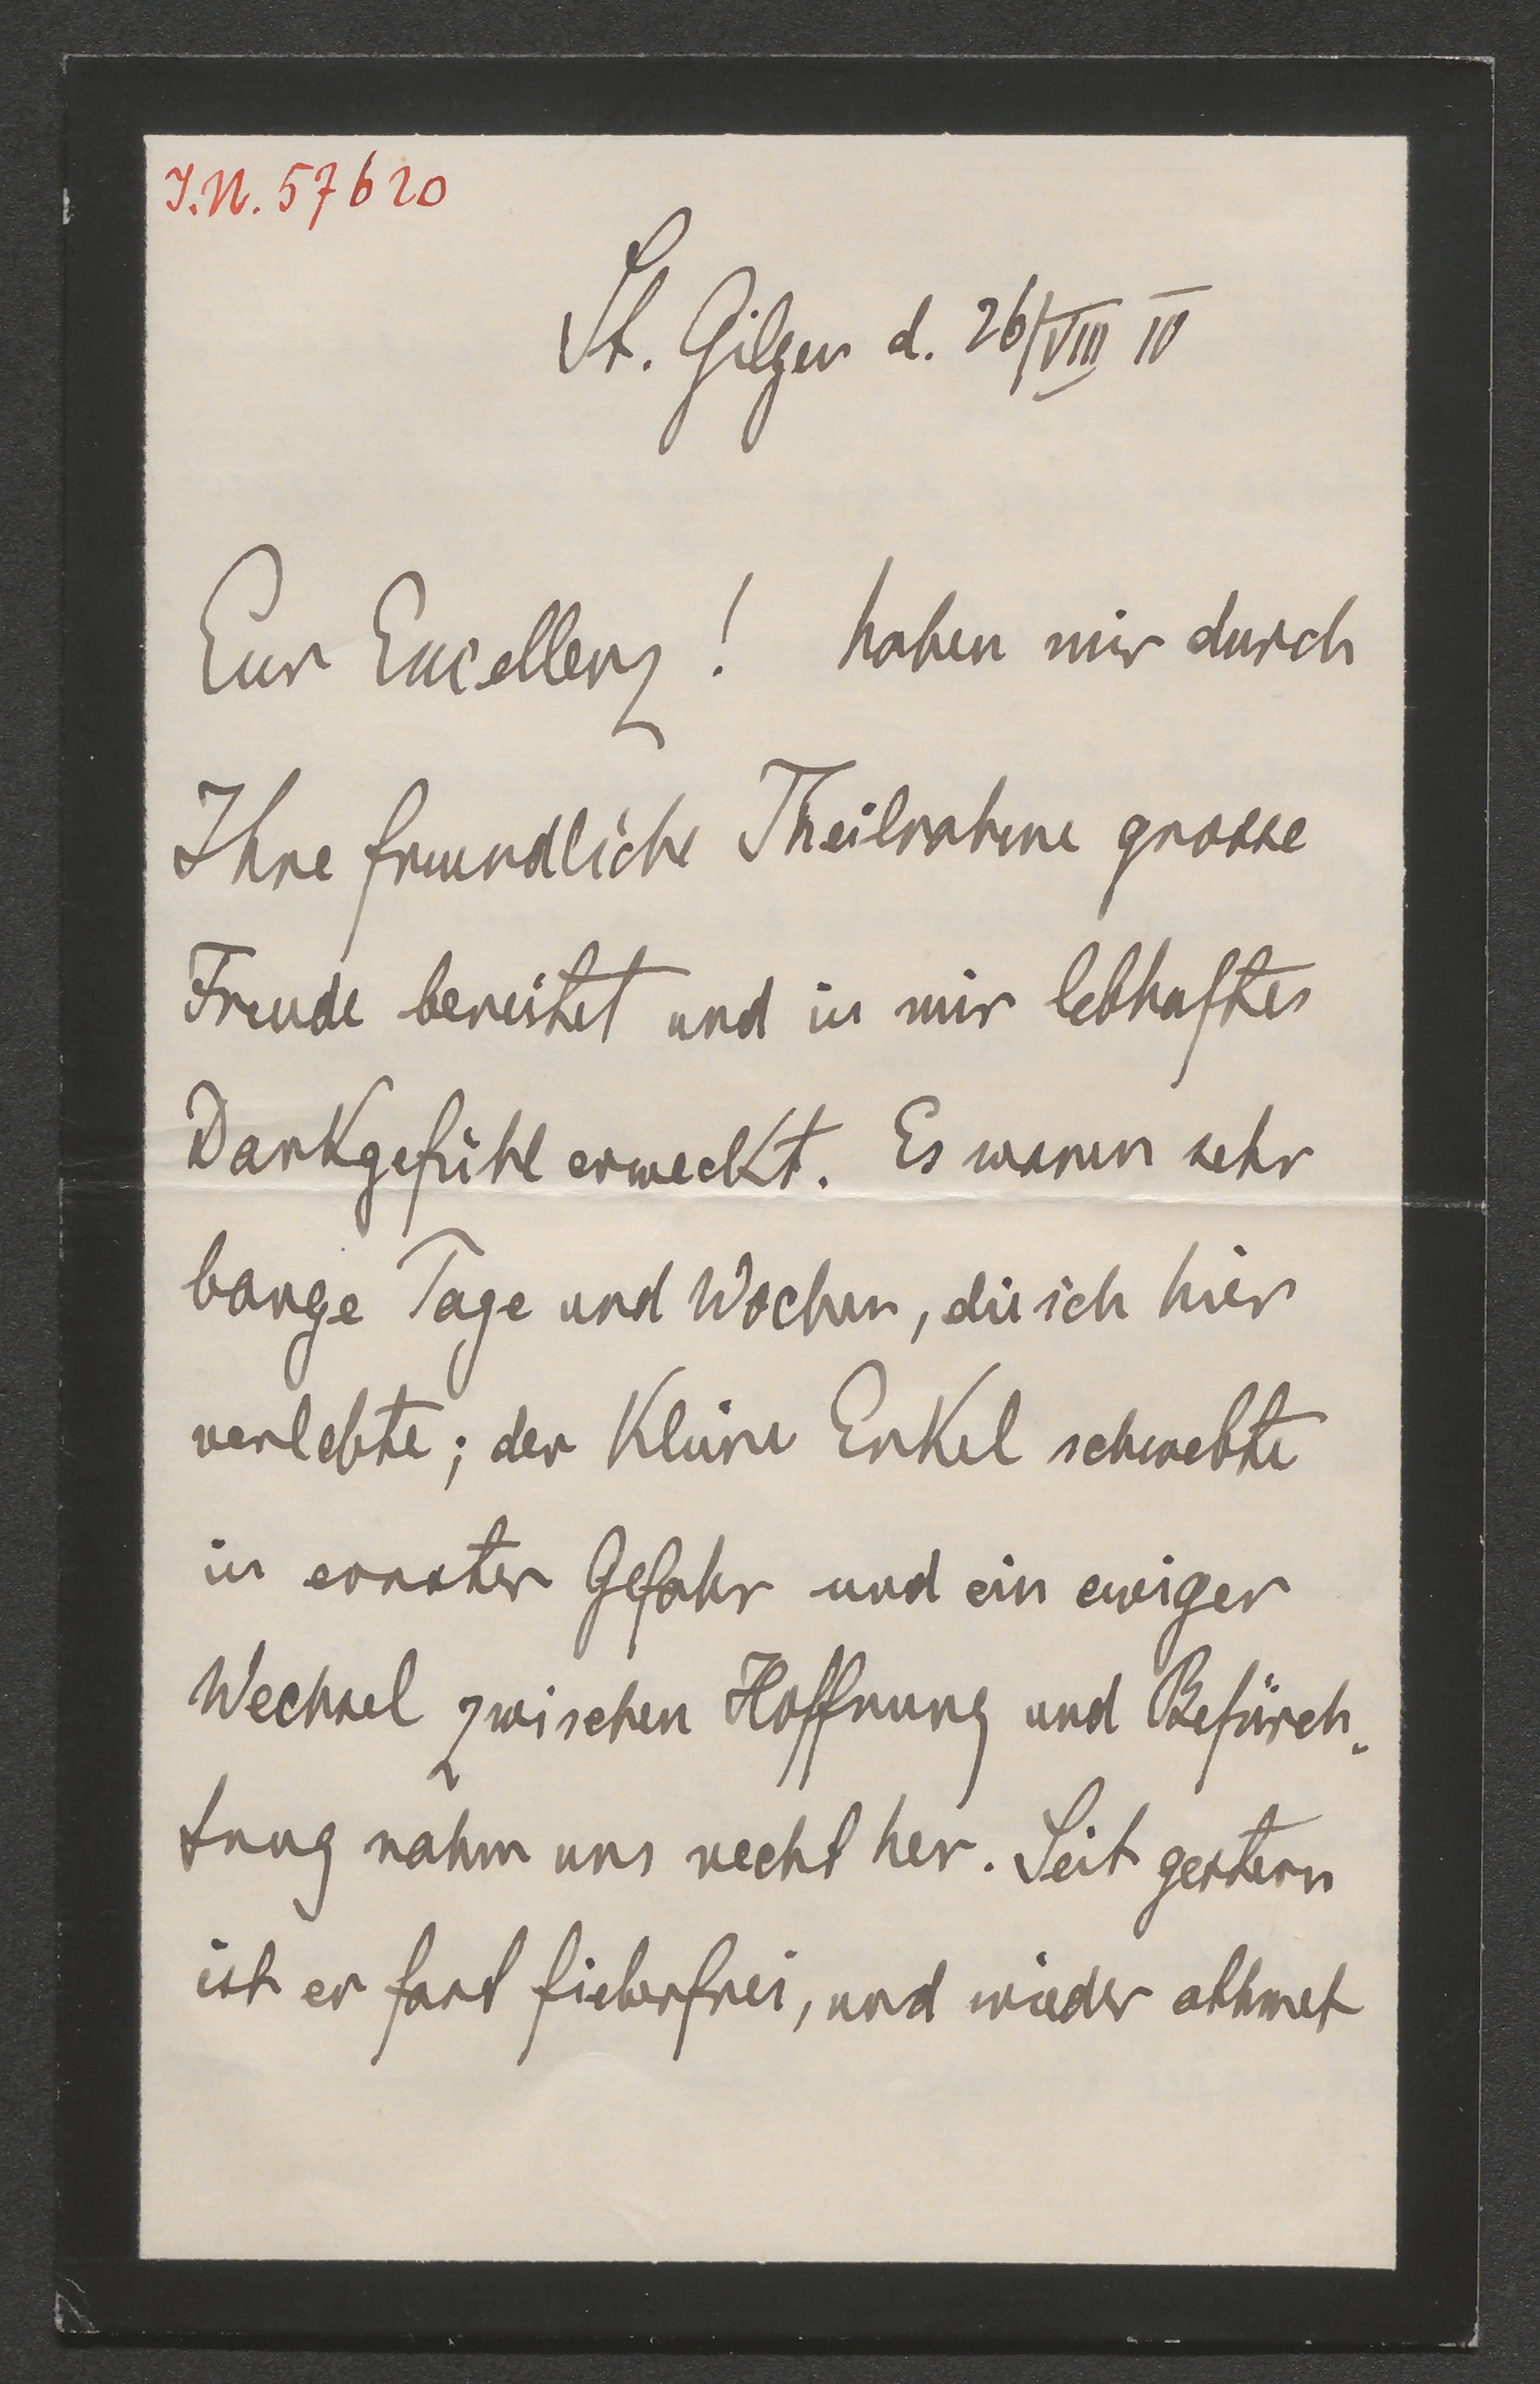 I.N. 57620
St. Gilgen d. 26/VIII 10
Eur Excellenz! haben mir durch
Ihre freundliche Theilnahme grosse
Freude bereitet und in mir lebhaftes
Dankgefühl erweckt. Es waren sehr
bange Tage und Wochen, die ich hier
verlebte; der kleine Enkel schwebte
in ernster Gefahr und ein ewiger
Wechsel zwischen Hoffnung und Befürch-
tung nahm uns recht her. Seit gestern
ist er fast fieberfrei, und wieder athmet